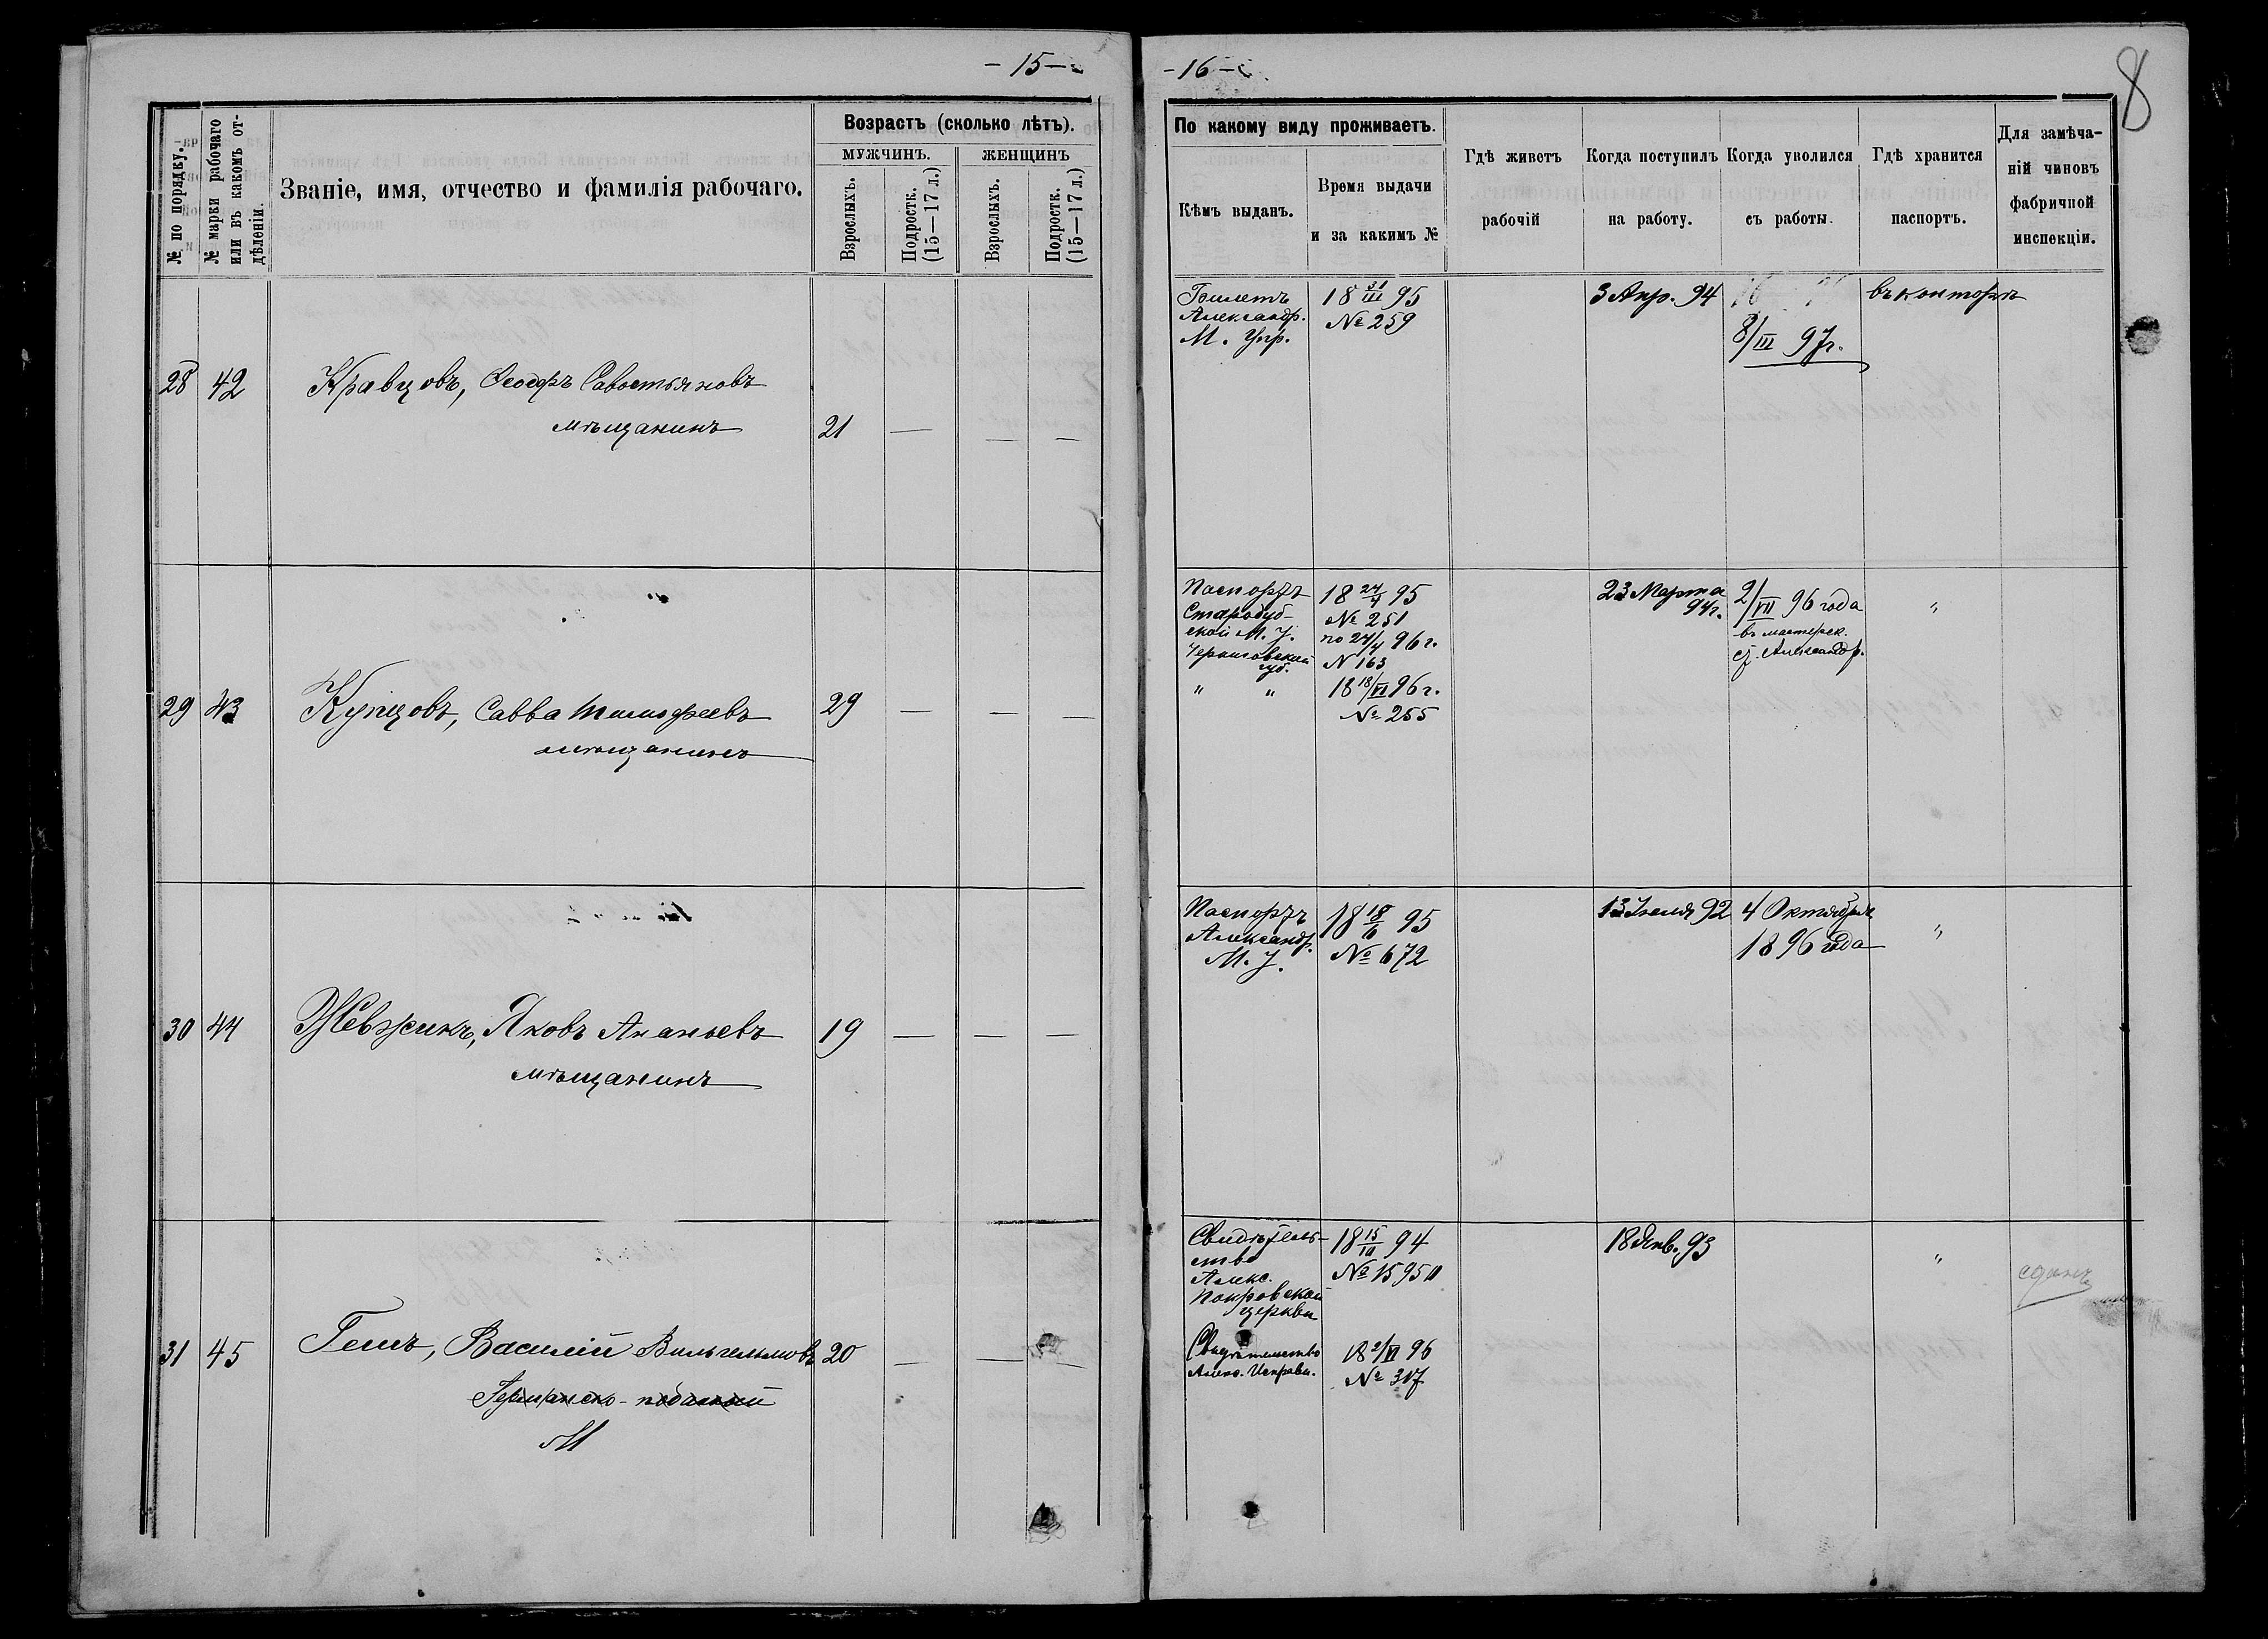 - 15 -
№ по порядку.
№ марки рабочаго
или въ какомъ от-
дѣленіи.
Званіе, имя, отчество и фамилія рабочаго.
Возрастъ (сколько лѣтъ).
МУЖЧИНЪ.
ЖЕНЩИНЪ
Взрослыхъ.
Подростк.
(15—17 л.)
Взрослыхъ.
Подростк.
(15—17 л.)
28 42 Кравцовъ, Ѳеодръ Савостьяновъ
мѣщанинъ 21 — — —
29 43 Купцовъ, Савва Тимофеевъ 29 — — —
мѣщанинъ
30 44 Жевжикъ, Яковъ Ананьевъ 19 — — —
мѣщанинъ
31 45 Гешъ, Василій Вильгельмовъ 20 — — —
Германско-поданый
М
- 16 -
8
По какому виду проживаетъ.
Кѣмъ выданъ.
Время выдачи
и за какимъ №
Гдѣ живетъ
рабочій
Когда поступилъ
на работу.
Когда уволился
съ работы.
Гдѣ хранится
паспортъ.
Для замѣча-
ній чиновъ
фабричной
инспекціи.
Билетъ
Александр.
М. Упр.
18 31/III 95
№ 259
3 Апр. 94
8/III 97г.
въ конторѣ
Паспортъ
Стародуб-
ской М. У.
Черниговской
губ.
" "
18 24/4 95
№ 251
по 24/4 96 г.
N 163
18 18/VI 96 г.
№ 255
23 Марта
94г.
2/VII 96 года
въ мастерск.
Александр.
"
Паспортъ
Александр.
М. У.
18 18/6 95
№ 672
13 Іюля 92
4 Октября
1896 года
"
Свидѣтель-
ство
Алекс.
Покровской
церкви
18 15/III 94
№ 1595
18 Янв. 93
"
Свидѣтельство
Алекс. Исправн.
18 2/VI 96
№ 317